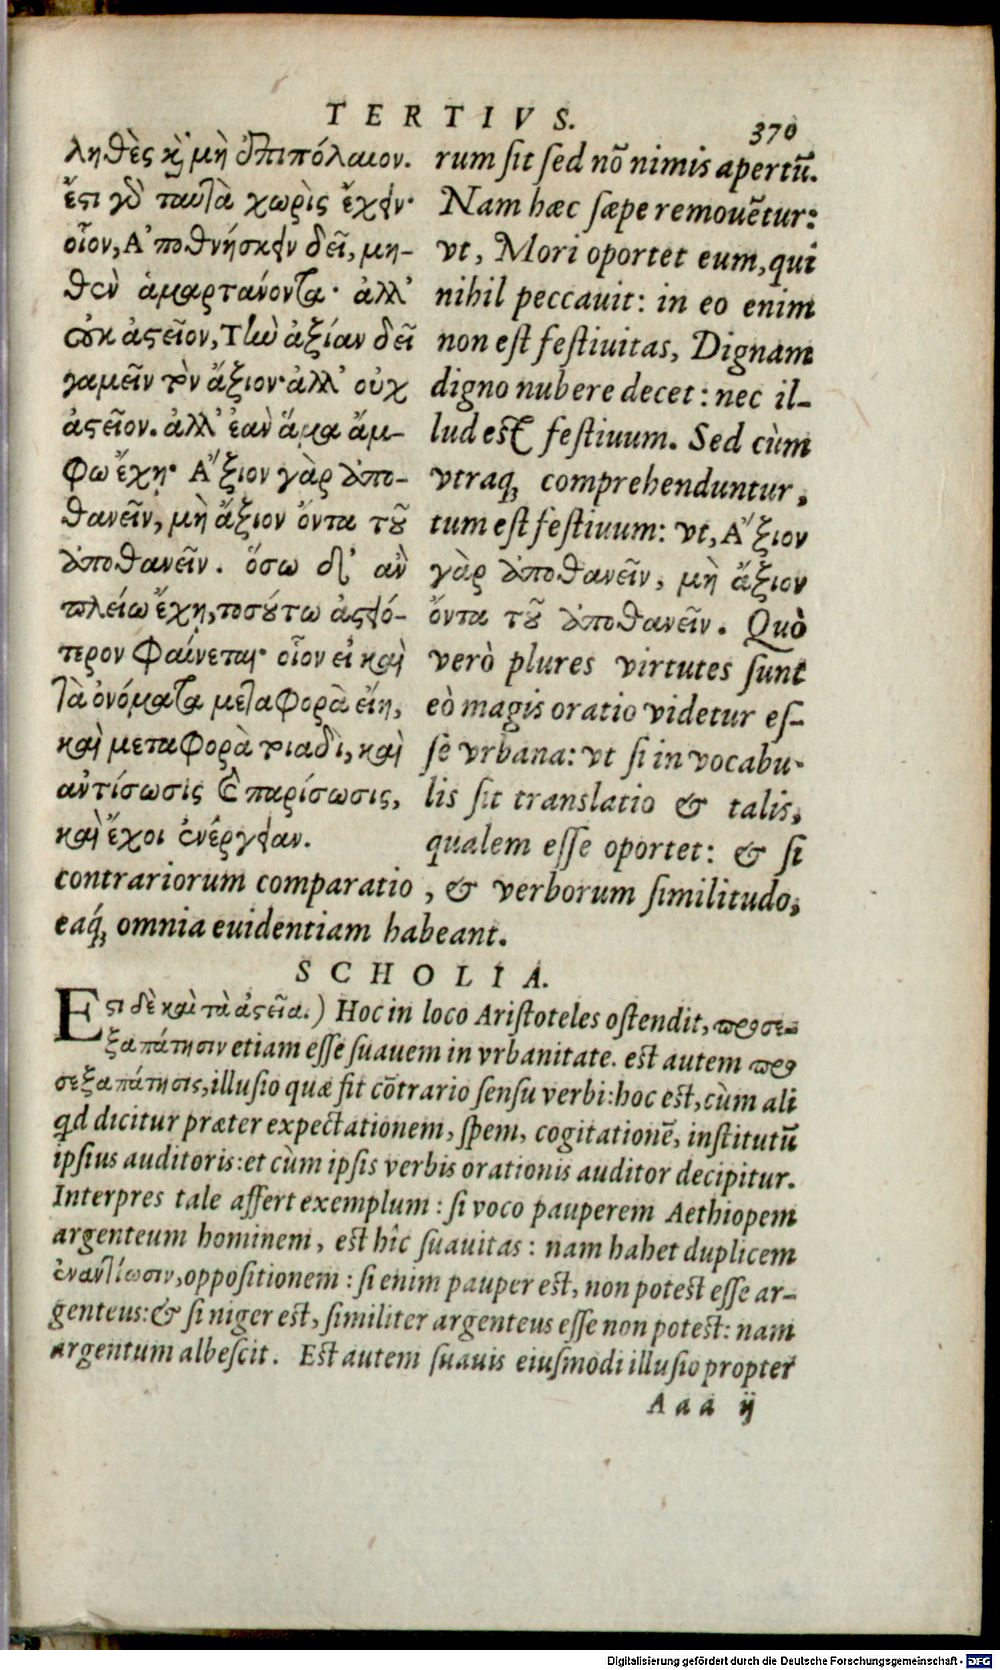 TERTIVS.
370
ληθὲς κὶ μὴ ἐπιπόλαιον.
ἔστι γὸ ταυτὰ χωρὶς ἔχειν·
οἷον, Α᾿ποθνήσκειν δεῖ, μη-
θὲν ἁμαρτάνοντα· ἀλλ᾿
οὐκ ἀστεῖον, Τὴν ἀξίαν δεῖ
γαμεῖν τὸν ἄξιον· ἀλλ᾿ οὐχ
ἀστεῖον. ἀλλ᾿ ἐαν ἅμα ἄμ-
φω ἔχῃ· Α῎ξιον γὰρ ἀπο-
θανεῖν, μὴ ἄξιον ὄντα τοῦ
ἀποθανεῖν. ὅσω δ᾿ ἀν
πλείω ἔχη, τοσούτω ἀστειό-
τερον φαίνεται· οἷον εἰ καὶ
τὰ ὀνόματα μεταφορὰ εἴη,
καὶ μεταφορὰ τιαδὶ, καὶ
αντίσωσις ὲ παρίσωσις,
καὶ ἔχοι ἐνέργειαν.
rum ſit ſed nō nimis apertū.
Nam hæc ſæpe remouētur:
vt, Mori oportet eum, qui
nihil peccauit: in eo enim
non eſt feſtiuitas, Dignam
digno nubere decet: nec il-
lud eſt feſtiuum. Sed cùm
vtraq; comprehenduntur,
tum eſt feſtiuum: vt, Α῎ξιον
γὰρ ἀποθανεῖν, μὴ ἄξιον
ὄντα τοῦ ἀποθανεῖν. Quò
verò plures virtutes ſunt
eò magis oratio videtur eſ-
ſe vrbana: vt ſi in vocabu-
lis ſit translatio & talis,
qualem eſſe oportet: & ſi
contrariorum comparatio, & verborum ſimilitudo,
eaq́; omnia euidentiam habeant.
SCHOLIA.
Eστι δὲ καὶ τὰ ἀστεῖα.) Hoc in loco Ariſtoteles oſtendit, προσε-
ξαπάτησιν etiam eſſe ſuauem in vrbanitate. eſt autem προ
σεξαπάτησις, illuſio quæ fit cōtrario ſenſu verbi: hoc eſt, cùm ali
qd dicitur præter expectationem, ſpem, cogitationē, inſtitutū
ipſius auditoris: et cùm ipſis verbis orationis auditor decipitur.
Interpres tale affert exemplum: ſi voco pauperem Aethiopem
argenteum hominem, eſt hîc ſuauitas: nam habet duplicem
ἐναντίωσιν, oppoſitionem: ſi enim pauper eſt, non poteſt eſſe ar-
genteus: & ſi niger eſt, ſimiliter argenteus eſſe non poteſt: nam
argentum albeſcit. Eſt autem ſuauis eiuſmodi illuſio propter
Aaa ij
Digitalisierung gefördert durch die Deutsche Forschungsgemeinschaft - DFG